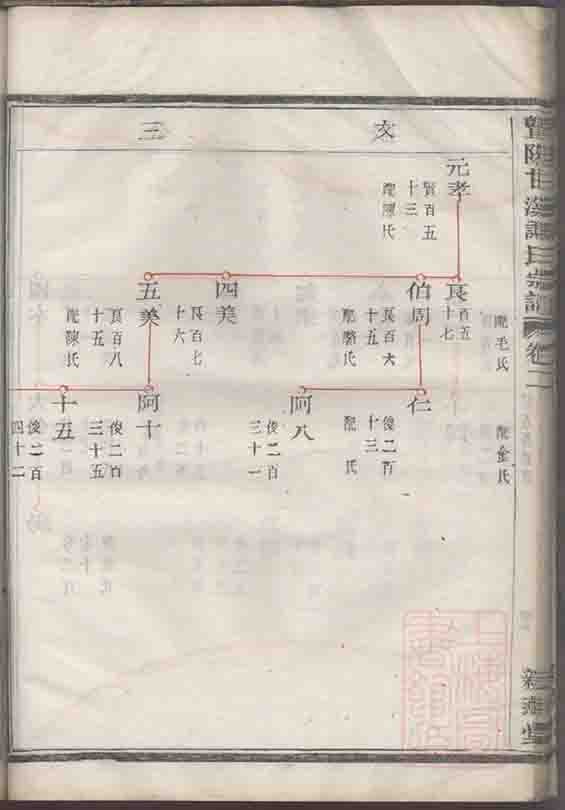 暨陽甘溪譚氏宗譜 卷二
文 三
元孝
賢百五
十三
配陳氏
良
百五
十七
配毛氏
伯周
良百六
十五
配駱氏
四美
良百七
十六
五美
良百八
十五
配陳氏
配金氏
仁
俊二百
十三
配 氏
阿八
俊二百
三十一
阿十
俊二百
三十五
十五
俊二百
四十二